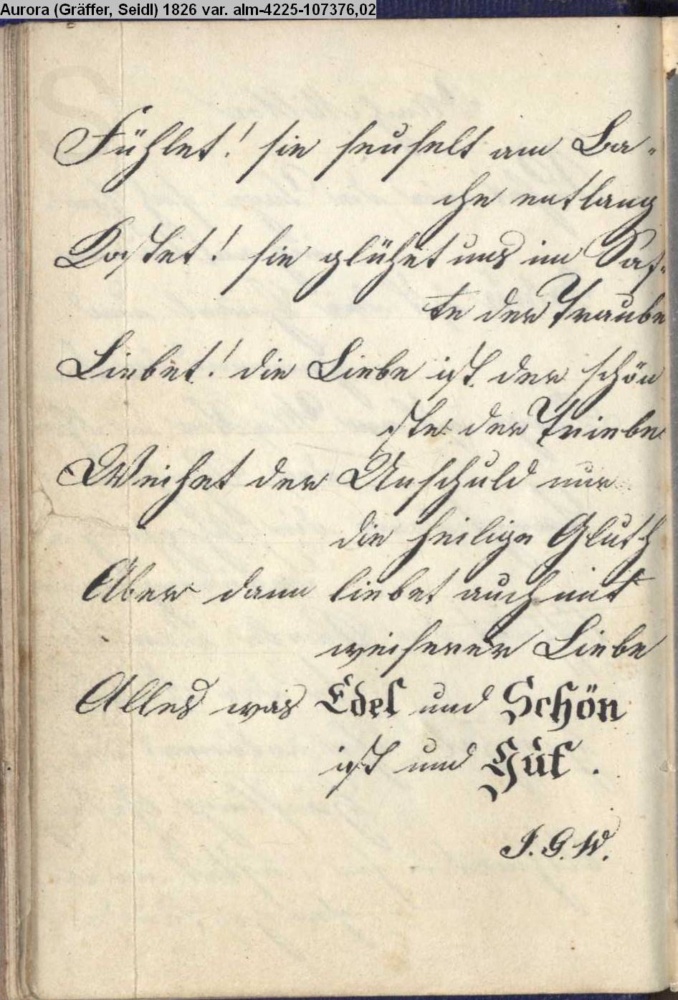 Aurora (Gräffer, Seidl) 1826 var. alm-4225-107376,02
Fühlet! sie säuselt am Ba-
che entlang
Kostet! sie glühet uns im Saf-
te der Traube
Liebet! die Liebe ist der schön
ste der Triebe
Weihet der Unschuld nur
die heilige Gluth
Aber dann liebet auch mit
weiserer Liebe
Alles was Edel und Schön
ist und Gut.
J. G. W.